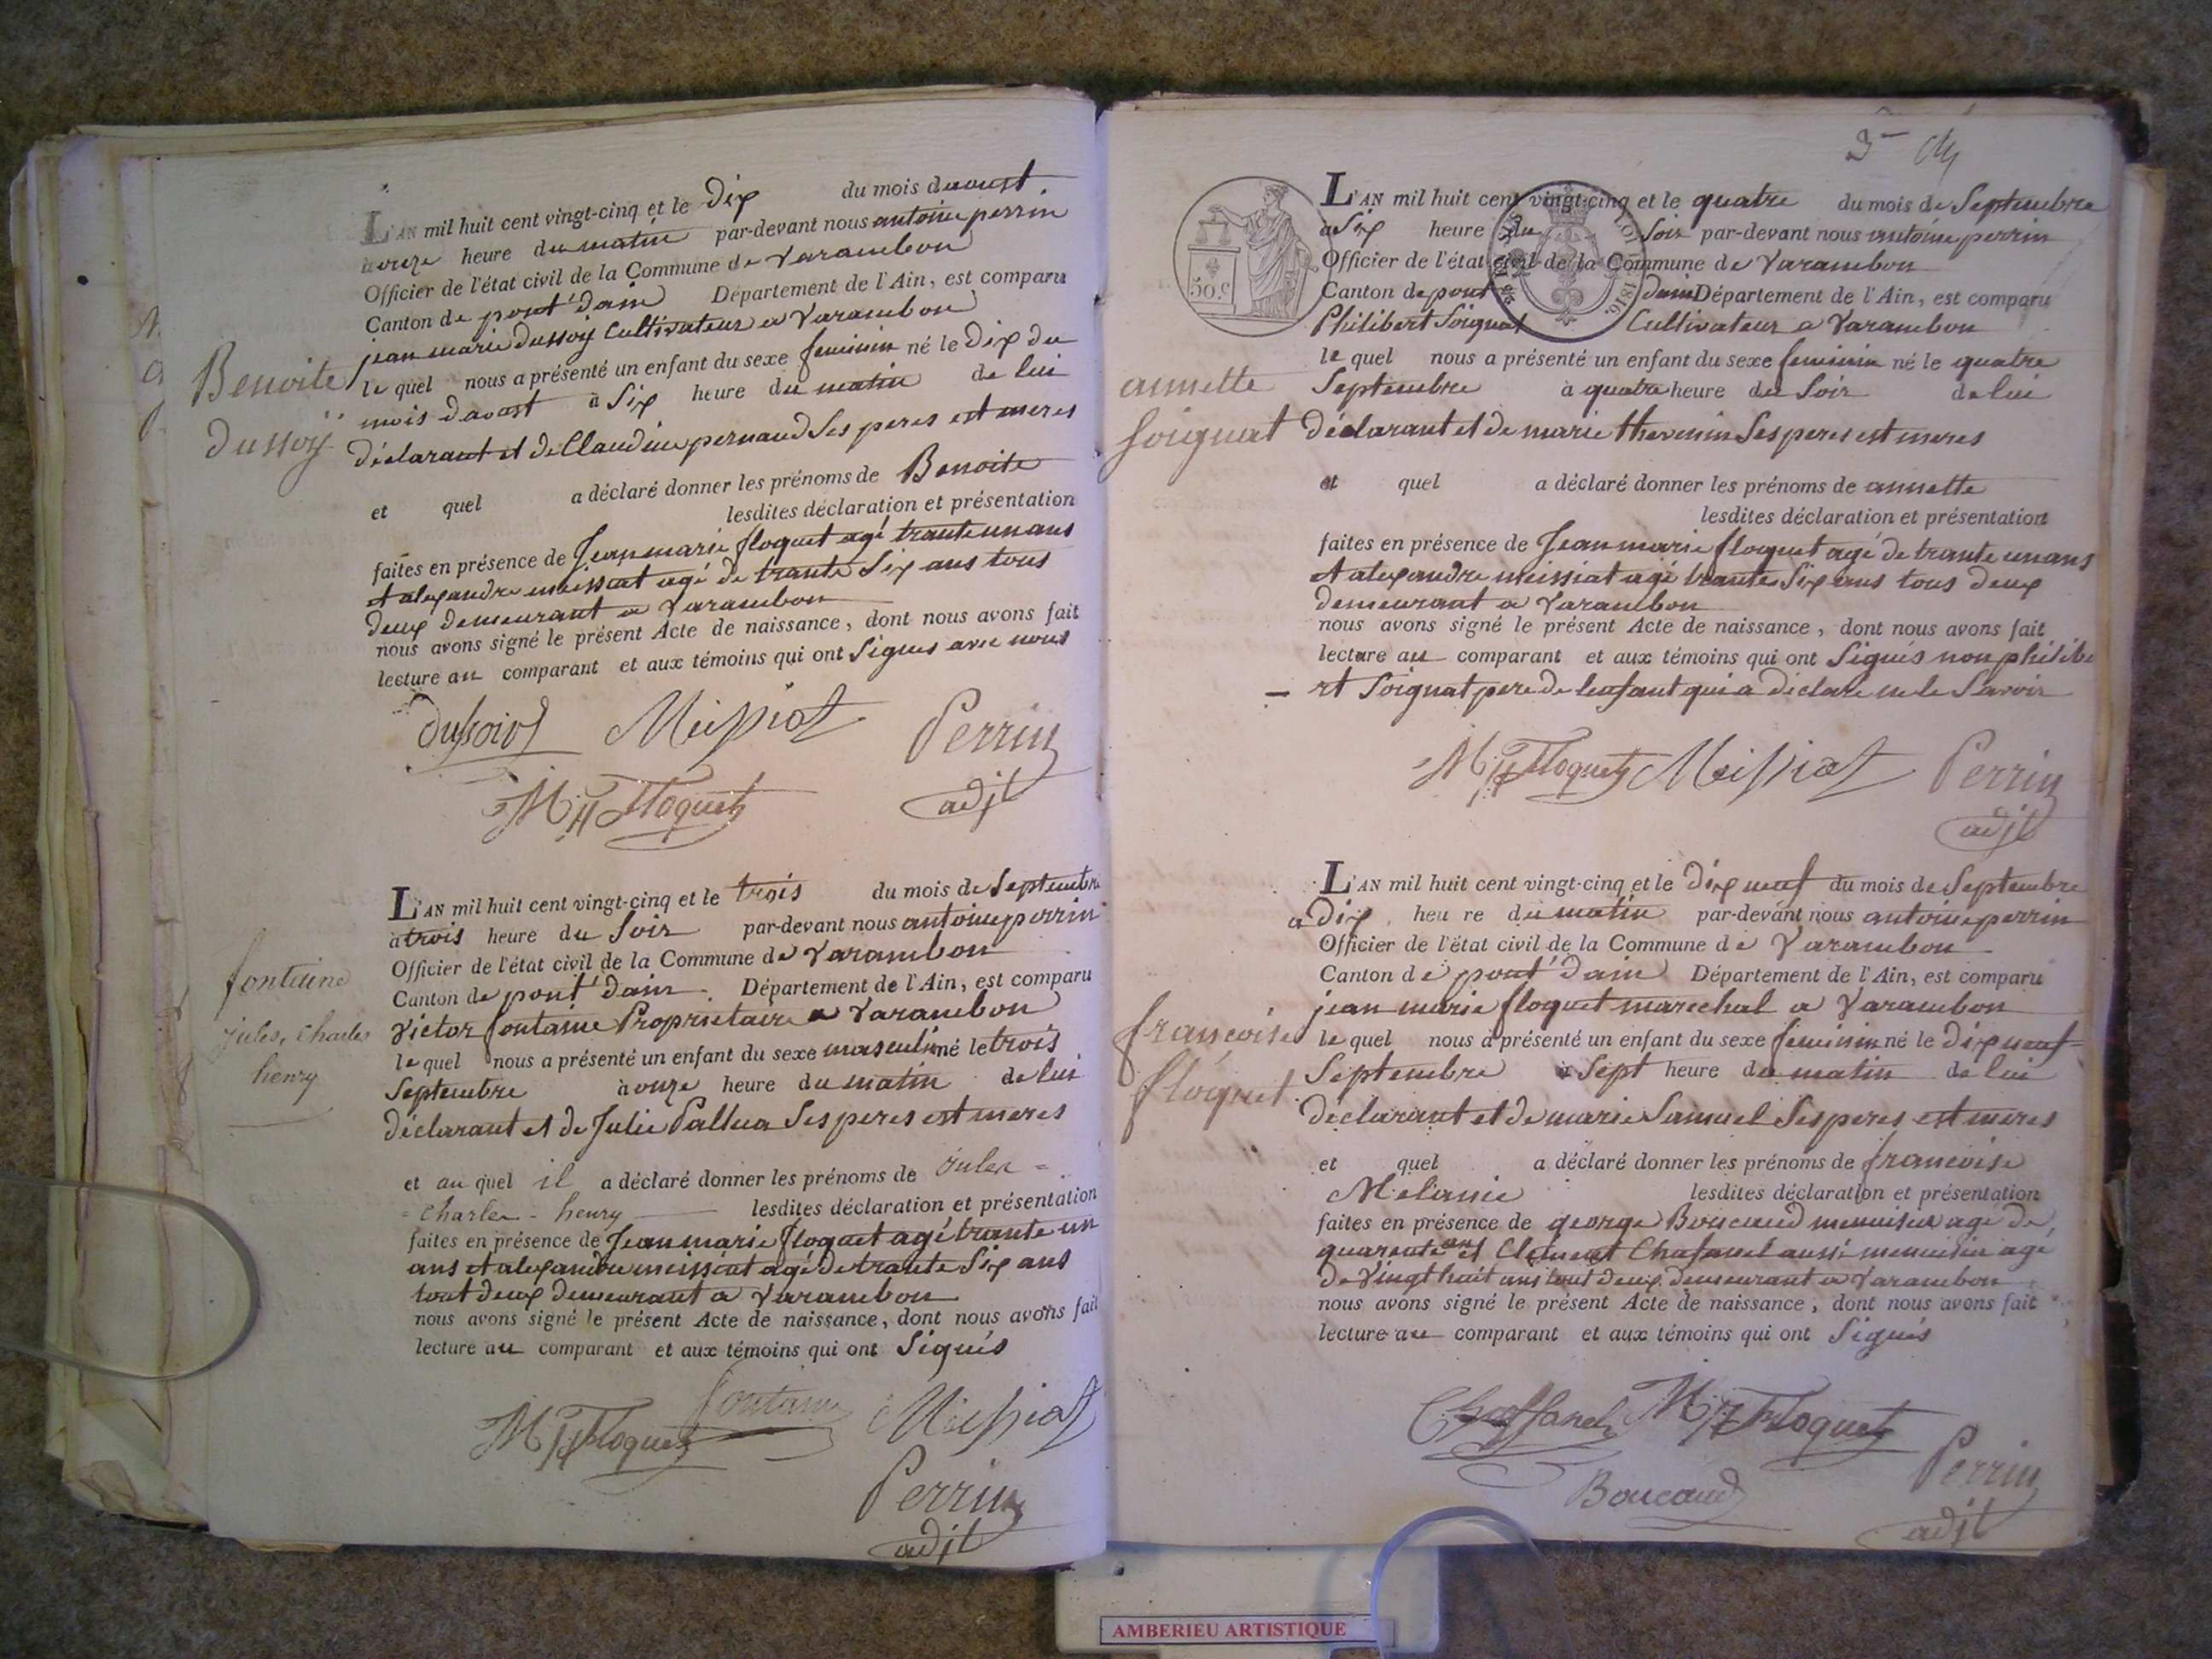 L'AN mil huit cent vingt-cinq et le Dix du mois daoust
a onze heure du matin par-devant nous antoine perrin
Officier de l'état civil de la Commune de Varambon
Canton de pont'dain Département de l'Ain, est comparu
jean marie dussoy Cultivateur a Varambon
Benoite
le quel nous a présenté un enfant du sexe feminin né le Dix du
mois daoust à Six heure du matin de lui
dussoy
déclarant et de Claudine pernaud Ses peres est meres
et quel a déclaré donner les prénoms de Benoite
lesdites déclaration et présentation
faites en présence de Jean marie floquet agé trante un ans
et alexandre meissiat agé de trante Six ans tous
deux demeurant a Varambon
nous avons signé le présent Acte de naissance, dont nous avons fait
lecture au comparant et aux témoins qui ont Signés avec nous
Meissiat Perrin
Floquet adjt
L'AN mil huit cent vingt-cinq et le trois du mois de Septembre
à trois heure du Soir par-devant nous antoine perrin
Officier de l'état civil de la Commune de Varambon
fontaine
Canton de pont'dain Département de l'Ain, est comparu
Victor fontaine Proprietaire a Varambon
jules, Charles
henry
le quel nous a présenté un enfant du sexe masculin né le trois
Septembre à onze heure du matin de lui
déclarant et de Julie Pallua Ses peres est meres
et au quel il a déclaré donner les prénoms de Jules =
= Charles - henry lesdites déclaration et présentation
faites en présence de Jean marie floquet agé trante un
ans et alexandre meissiat agé de trante Six ans
tout deux demeurant a Varambon
nous avons signé le présent Acte de naissance, dont nous avons fait
lecture au comparant et aux témoins qui ont Signés
fontaine Meissiat
Floquet
Perrin
adjt
L'AN mil huit cent vingt-cinq et le quatre du mois de Septembre
a Six heure du Soir par-devant nous antoine perrin
Officier de l'état civil de la Commune de Varambon
Canton de pont dain Département de l'Ain, est comparu
50.c
1816.
Philibert Soignat Cultivateur a Varambon
le quel nous a présenté un enfant du sexe feminin né le quatre
annette
Soignat
Septembre à quatre heure du Soir de lui
déclarant et de marie thevenin Ses peres est meres
et quel a déclaré donner les prénoms de annette
lesdites déclaration et présentation
faites en présence de Jean marie floquet agé de trante un ans
et alexandre meissiat agé trante Six ans tous deux
demeurant a Varambon
nous avons signé le présent Acte de naissance, dont nous avons fait
lecture au comparant et aux témoins qui ont Signés non philibe
- rt Soignat pere de lenfant qui a déclaré ne le Savoir
Floquet Meissiat Perrin
adjt
L'AN mil huit cent vingt-cinq et le dix neuf du mois de Septembre
a Dix heure du matin par-devant nous antoine perrin
Officier de l'état civil de la Commune de Varambon
Canton de pont'dain Département de l'Ain, est comparu
jean marie floquet marechal a Varambon
françoise
floquet
le quel nous a présenté un enfant du sexe feminin né le dix neuf
Septembre à Sept heure du matin de lui
déclarant et de marie Samuel Ses peres est meres
et quel a déclaré donner les prénoms de francoise
Melanie lesdites déclaration et présentation
faites en présence de george Boucaud menuisier agé de
quarante ans et Clement Chafanel aussi menuisier agé
de Vingt huit ans tout deux demeurant a Varambon
nous avons signé le présent Acte de naissance, dont nous avons fait
lecture au comparant et aux témoins qui ont Signés
Chaffanel Floquet
Perrin
Boucaud
adjt
AMBERIEU ARTISTIQUE